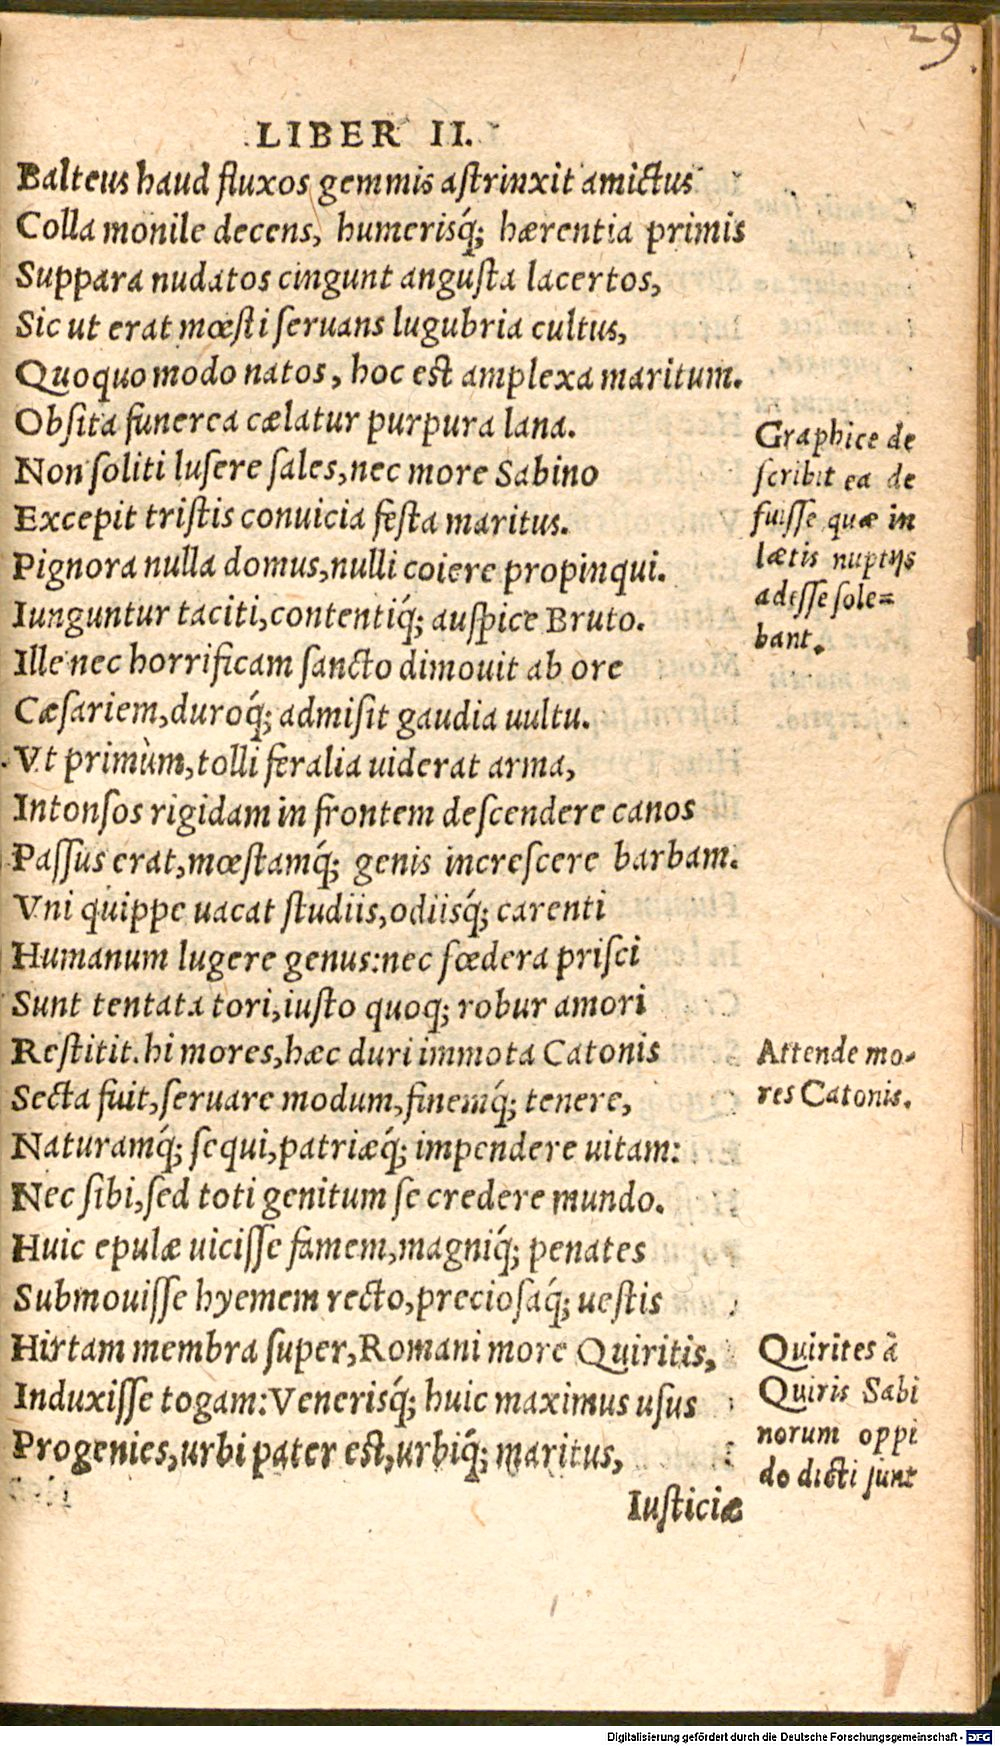 29
LIBER II.
Balteus haud fluxos gemmis astrinxit amictus
Colla monile decens, humerisq́; hærentia primis
Suppara nudatos cingunt angusta lacertos,
Sic ut erat mœsti seruans lugubria cultus,
Quoquo modo natos, hoc est amplexa maritum.
Obsita funerea cælatur purpura lana.
Non soliti lusere sales, nec more Sabino
Excepit tristis conuicia festa maritus.
Pignora nulla domus, nulli coiere propinqui.
Iunguntur taciti, contentiq́; auspice Bruto.
Ille nec horrificam sancto dimouit ab ore
Cæsariem, duroq́; admisit gaudia uultu.
Vt primùm, tolli feralia uiderat arma,
Intonsos rigidam in frontem descendere canos
Passus erat, mœstamq́; genis increscere barbam.
Vni quippe uacat studiis, odiisq́; carenti
Humanum lugere genus: nec fœdera prisci
Sunt tentata tori, iusto quoq; robur amori
Restitit. hi mores, hæc duri immota Catonis
Secta fuit, seruare modum, finemq́; tenere,
Naturamq́; sequi, patriæq́; impendere uitam:
Nec sibi, sed toti genitum se credere mundo.
Huic epulæ uicisse famem, magniq́; penates
Submouisse hyemem recto, preciosaq́; uestis
Hirtam membra super, Romani more Quiritis,
Induxisse togam: Venerisq́; huic maximus usus
Progenies, urbi pater est, urbiq́; maritus,
Iusticiæ
Graphice de
scribit ea de
fuisse quæ in
lætis nuptijs
adesse sole=
bant.
Attende mo-
res Catonis.
Quirites à
Quiris Sabi
norum oppi
do dicti sunt
Digitalisierung gefördert durch die Deutsche Forschungsgemeinschaft - DFG